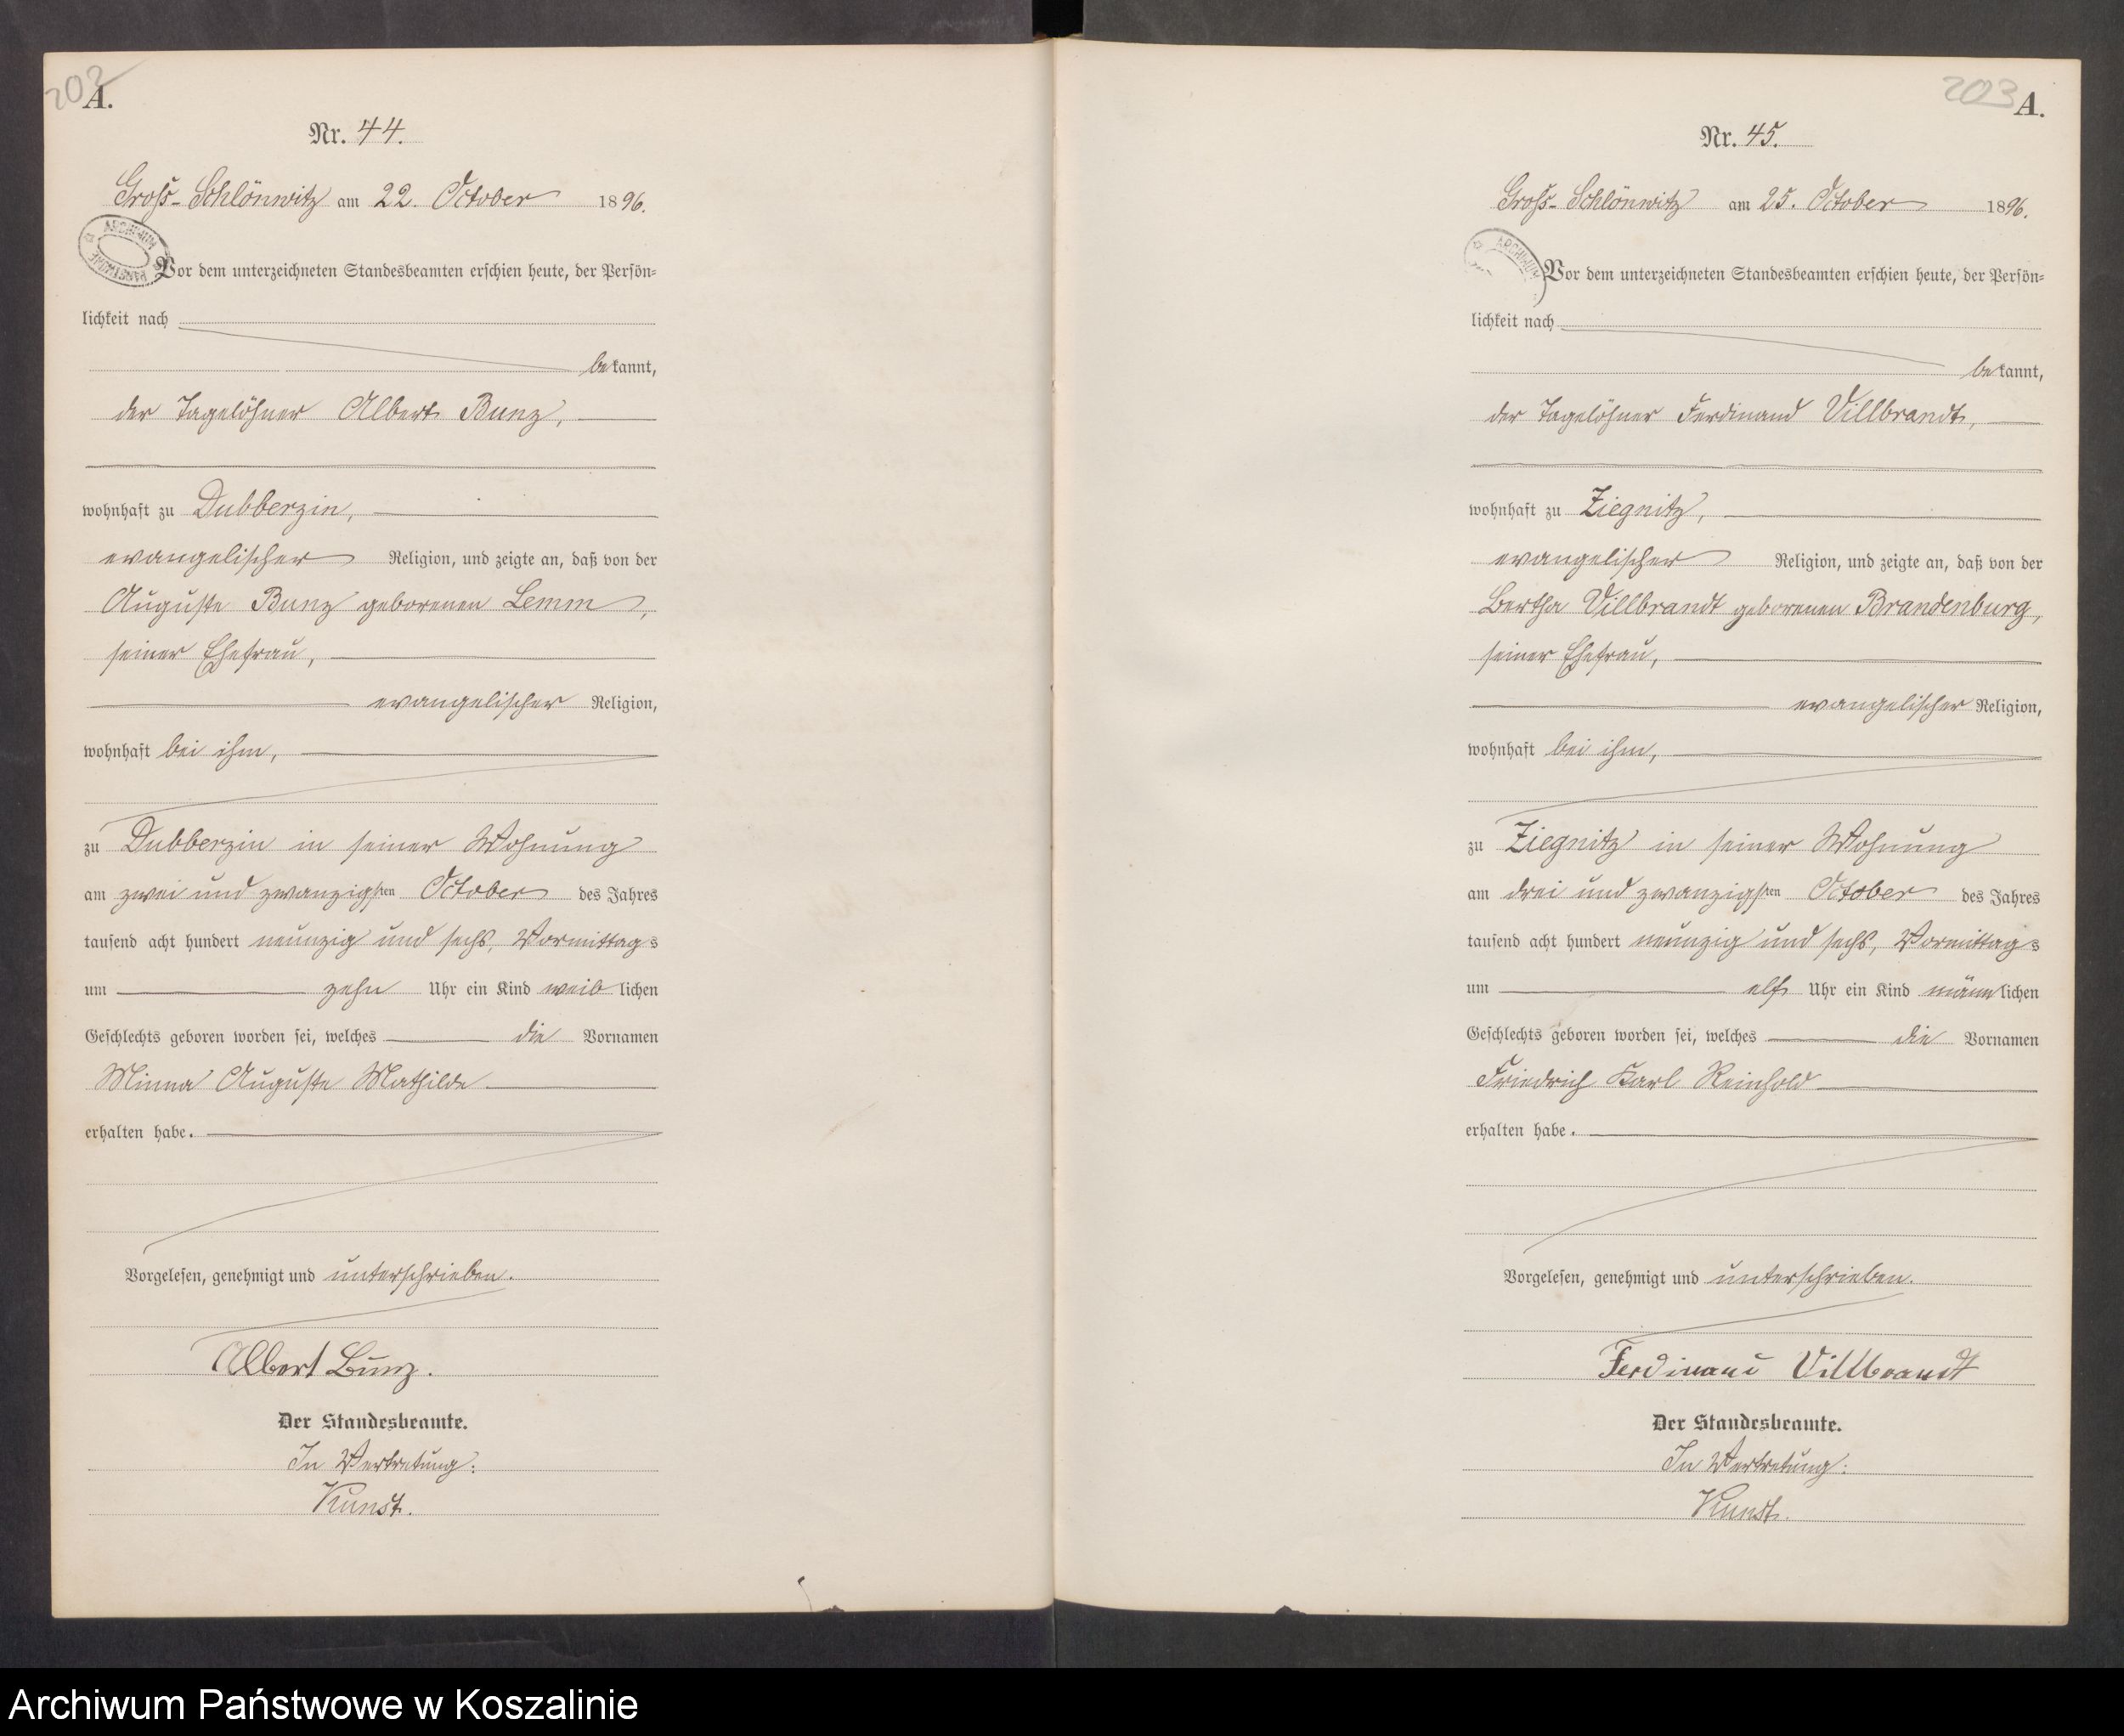 202
A.
Nr. 44.
Groß-Schlönwitz am 22. October 1896.
ARCHIWUM PAŃSTWOWE
Vor dem unterzeichneten Standesbeamten erschien heute, der Persön=
lichkeit nach
bekannt,
der Tagelöhner Albert Bunz,
wohnhaft zu Dubberzin,
evangelischer Religion, und zeigte an, daß von der
Auguste Bunz geborenen Lemm,
seiner Ehefrau,
evangelischer Religion,
wohnhaft bei ihm,
zu Dubberzin in seiner Wohnung
am zwei und zwanzigsten October des Jahres
tausend acht hundert neunzig und sechs, Vormittags
um zehn Uhr ein Kind weiblichen
Geschlechts geboren worden sei, welches die Vornamen
Minna Auguste Mathilde
erhalten habe.
Vorgelesen, genehmigt und unterschrieben.
Albert Bunz.
Der Standesbeamte.
In Vertretung:
Kunst.
203
A.
Nr. 45.
Groß-Schlönwitz am 25. October 1896.
ARCHIWUM
Vor dem unterzeichneten Standesbeamten erschien heute, der Persön=
lichkeit nach
bekannt,
der Tagelöhner Ferdinand Villbrandt,
wohnhaft zu Ziegnitz,
evangelischer Religion, und zeigte an, daß von der
Bertha Villbrandt geborenen Brandenburg,
seiner Ehefrau,
evangelischer Religion,
wohnhaft bei ihm,
zu Ziegnitz in seiner Wohnung
am drei und zwanzigsten October des Jahres
tausend acht hundert neunzig und sechs, Vormittags
um elf Uhr ein Kind männlichen
Geschlechts geboren worden sei, welches die Vornamen
Friedrich Karl Reinhold
erhalten habe.
Vorgelesen, genehmigt und unterschrieben.
Ferdinand Villbrandt
Der Standesbeamte.
In Vertretung:
Kunst.
Archiwum Państwowe w Koszalinie